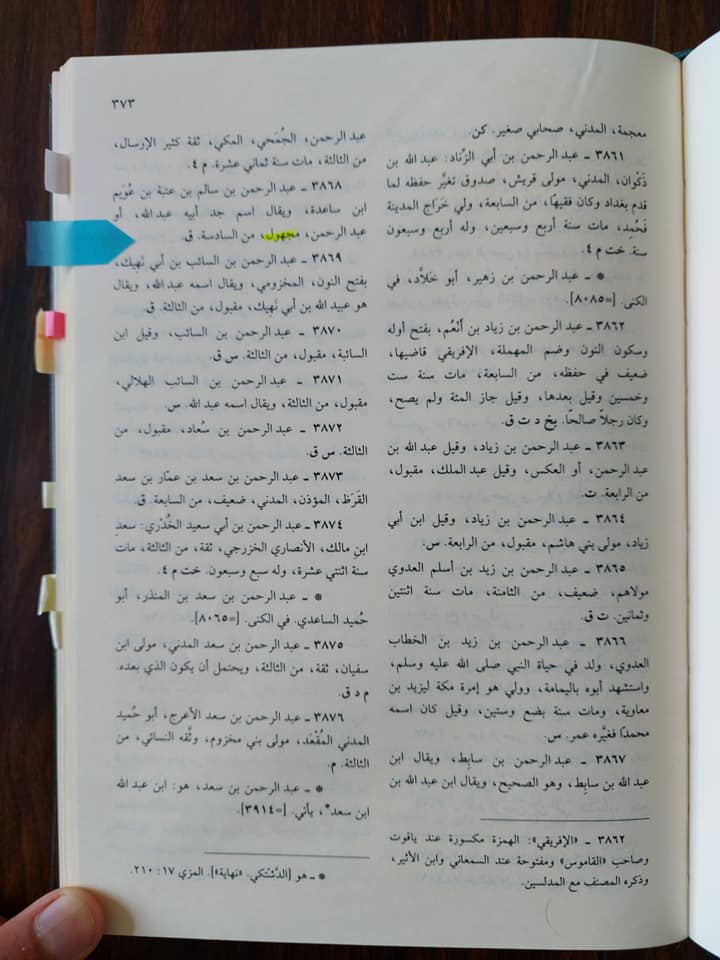 ٣٧٣
معجمة، المدني، صحابي صغير. كن.
٣٨٦١ ـ عبد الرحمن بن أبي الزِّناد: عبد الله بن
ذَكْوان، المدني، مولى قريش، صدوق تغيَّر حفظه لما
قدم بغداد وكان فقيهًا، من السابعة، ولي خَرَاج المدينة
فَحُمِد، مات سنة أربع وسبعين، وله أربع وسبعون
سنة. خت م ٤.
* ـ عبد الرحمن بن زهير، أبو خلاَّد، في
الكنى. [=٨٠٨٥].
٣٨٦٢ ـ عبد الرحمن بن زياد بن أَنْعُم، بفتح أوله
وسكون النون وضم المهملة، الإفريقي قاضيها،
ضعيف في حفظه، من السابعة، مات سنة ست
وخمسين وقيل بعدها، وقيل جاز المئة ولم يصح،
وكان رجلاً صالحًا. بخ د ت ق.
٣٨٦٣ ـ عبد الرحمن بن زياد، وقيل عبد الله بن
عبد الرحمن، أو العكس، وقيل عبد الملك، مقبول،
من الرابعة. ت.
٣٨٦٤ ـ عبد الرحمن بن زياد، وقيل ابن أبي
زياد، مولى بني هاشم، مقبول، من الرابعة. س.
٣٨٦٥ ـ عبد الرحمن بن زيد بن أسلم العدوي
مولاهم، ضعيف، من الثامنة، مات سنة اثنتين
وثمانين. ت ق.
٣٨٦٦ ـ عبد الرحمن بن زيد بن الخطاب
العدوي، ولد في حياة النبي صلى الله عليه وسلم،
واستشهد أبوه باليمامة، وولي هو إمرة مكة ليزيد بن
معاوية، ومات سنة بضع وستين، وقيل كان اسمه
محمدًا فغيَّره عمر. س.
٣٨٦٧ ـ عبد الرحمن بن سابِط، ويقال ابن
عبد الله بن سابَط، وهو الصحيح، ويقال ابن عبد الله بن
٣٨٦٢ ـ «الإفريقي»: الهمزة مكسورة عند ياقوت
وصاحب «القاموس» ومفتوحة عند السمعاني وابن الأثير،
وذكره المصنف مع المدلسين.
عبد الرحمن، الجُمَحي، المكي، ثقة كثير الإرسال،
من الثالثة، مات سنة ثماني عشرة. م ٤.
٣٨٦٨ ـ عبد الرحمن بن سالم بن عتبة بن عُوَيم
ابن ساعدة، ويقال اسم جد أبيه عبد الله، أو
عبد الرحمن، مجهول، من السادسة. ق.
٣٨٦٩ ـ عبد الرحمن بن السائب بن أبي نَهيك،
بفتح النون، المخزومي، ويقال اسمه عبد الله، ويقال
هو عبيد الله بن أبي نَهيك، مقبول، من الثالثة. ق.
٣٨٧٠ ـ عبد الرحمن بن السائب، وقيل ابن
السائبة، مقبول، من الثالثة. س ق.
٣٨٧١ ـ عبد الرحمن بن السائب الهلالي،
مقبول، من الثالثة، ويقال اسمه عبد الله. س.
٣٨٧٢ ـ عبد الرحمن بن سُعاد، مقبول، من
الثالثة. س ق.
٣٨٧٣ ـ عبد الرحمن بن سعد بن عمّار بن سعد
القَرَظ، المؤذن، المدني، ضعيف، من السابعة. ق.
٣٨٧٤ ـ عبد الرحمن بن أبي سعيد الخُدْري: سعدِ
ابنِ مالك، الأنصاري الخزرجي، ثقة، من الثالثة، مات
سنة اثنتي عشرة، وله سبع وسبعون. خت م ٤.
* ـ عبد الرحمن بن سعد بن المنذر، أبو
حُميد الساعدي. في الكنى. [=٨٠٦٥].
٣٨٧٥ ـ عبد الرحمن بن سعد المدني، مولى ابن
سفيان، ثقة، من الثالثة، ويحتمل أن يكون الذي بعده.
م د ق.
٣٨٧٦ ـ عبد الرحمن بن سعد الأعرج، أبو حُميد
المدني المُقْعَد، مولى بني مخزوم، وثَّقه النسائي، من
الثالثة. م.
* ـ عبد الرحمن بن سعد، هو: ابن عبد الله
ابن سعد*، يأتي. [=٣٩١٤].
* ـ هو [الدَّشْتكي. «نهاية»]. المزي ١٧: ٢١٠.